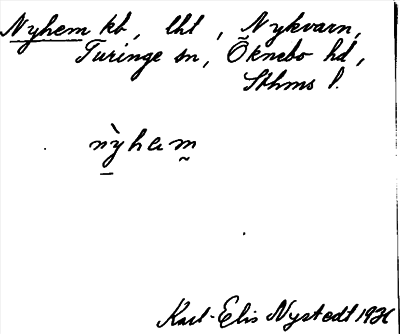 Nyhem kb, lht, Nykvarn,
Turinge sn, Öknebo hd,
Sthms l.
nỳhem
Karl-Elis Nystedt 1936